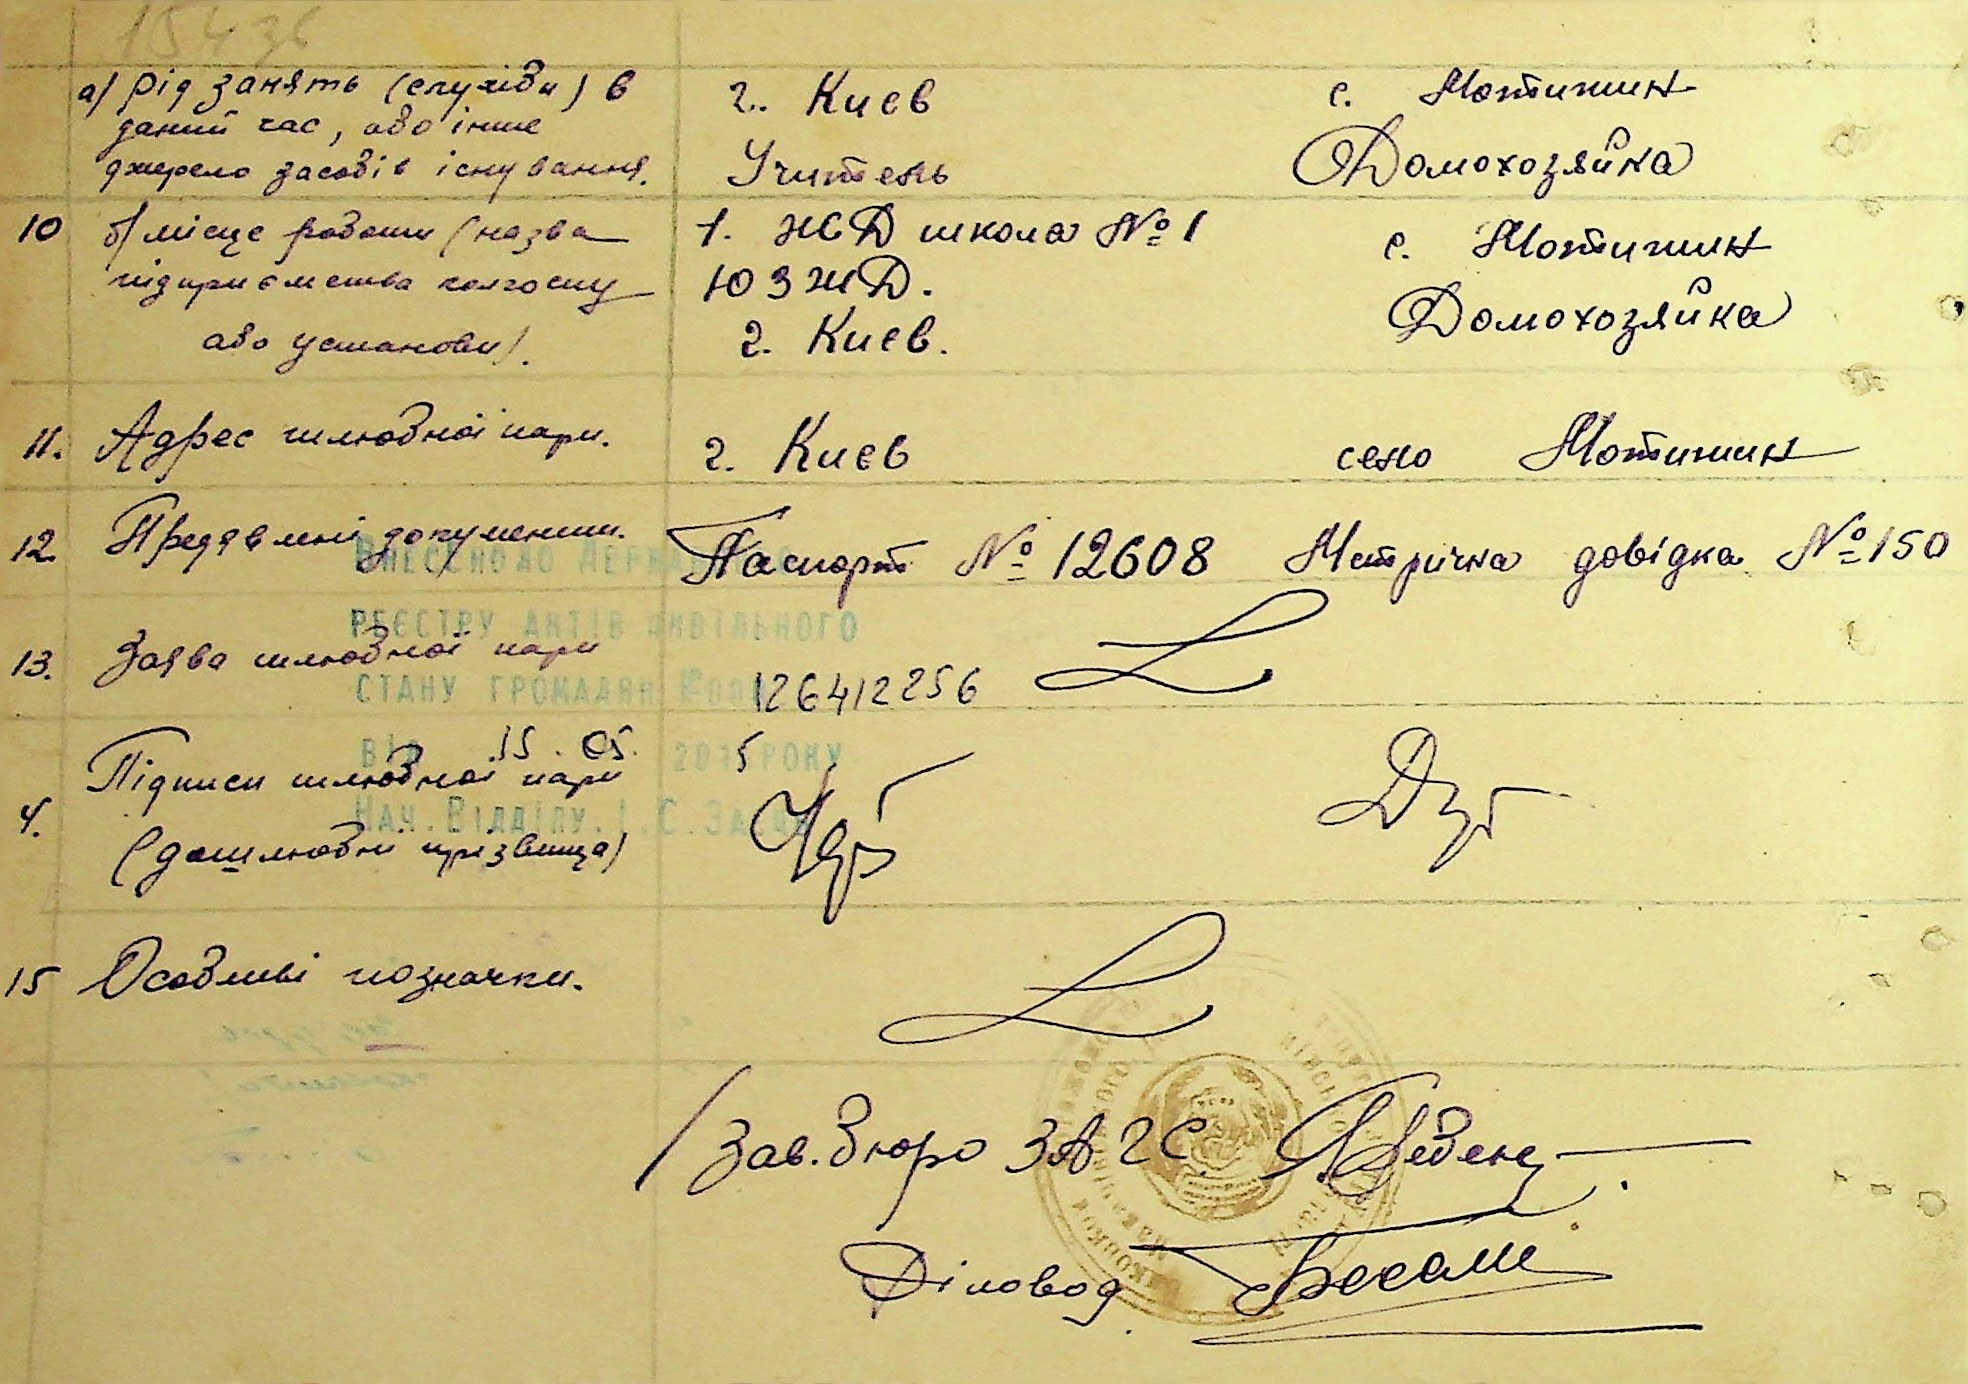 15436
а) рід занять (служби) в г. Киев с. Мотижин
даний час, або інше
джерело засобів існування. Учитель Домохозяйка
10 б) місце работи (назва 1. ЖД школа № 1 с. Мотижин
підприємства колгоспу ЮЗЖД. Домохозяйка
або установи). г. Киев.
11. Адрес шлюбної пари. г. Киев село Мотижин
12. Предявлені документи. Паспорт № 12608 Метрична довідка № 150
Внесено до Державного
реєстру актів цивільного
13. Заява шлюбної пари
стану громадян 126412256
від 15.05. 2015 року
4. Підписи шлюбної пари
Нач. Відділу. І.С.
(дошлюбні прізвища)
15 Особливі позначки.
Зав. бюро ЗАГС
Діловод